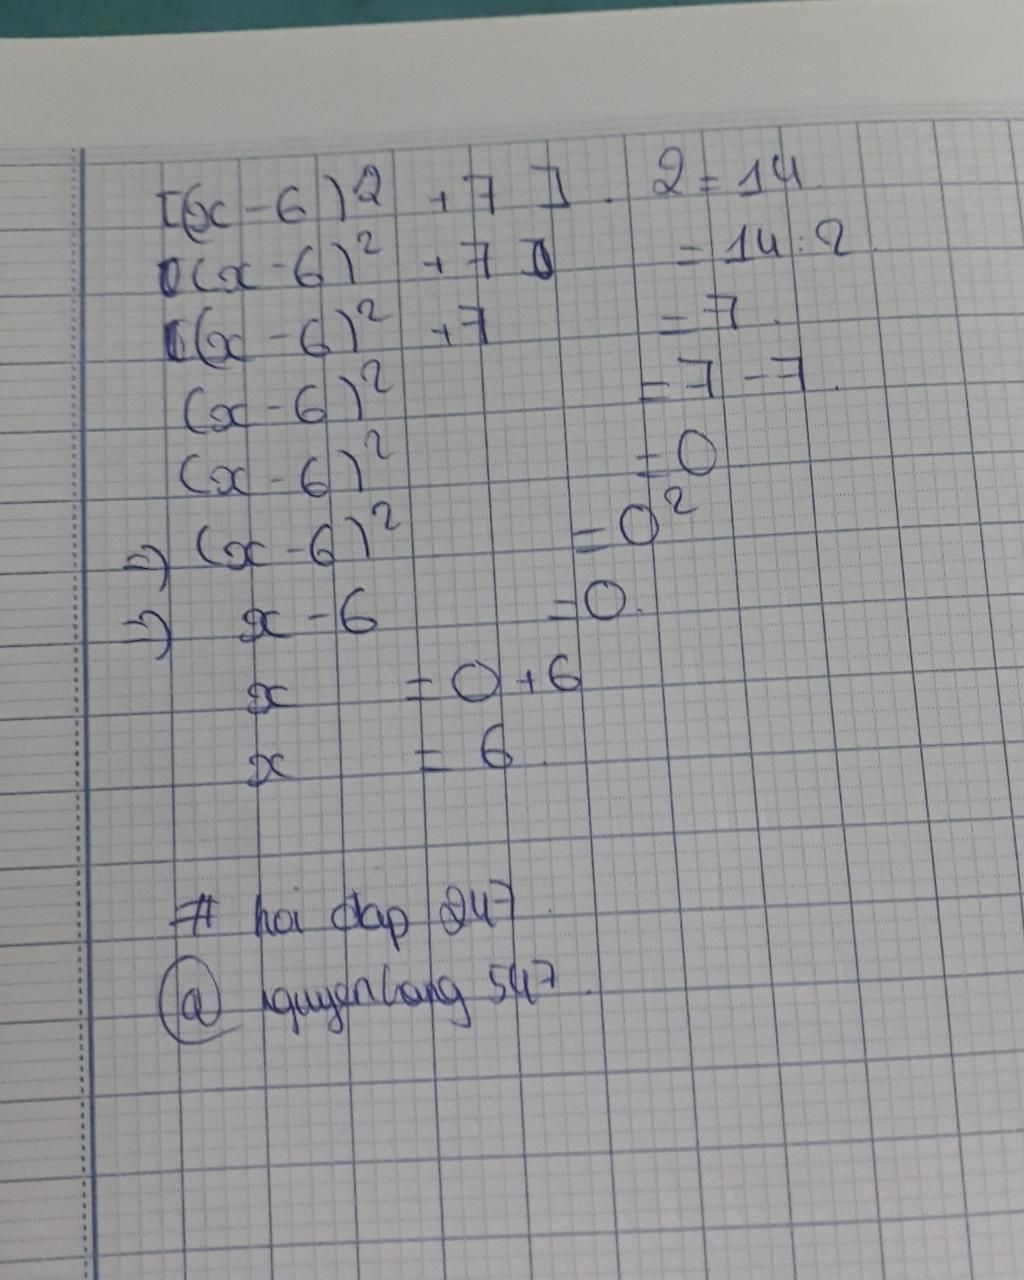 [(x - 6)² + 7 ] . 2 = 14
(x - 6)² + 7 = 14 : 2
(x - 6)² + 7 = 7
(x - 6)² = 7 - 7
(x - 6)² = 0
=> (x - 6)² = 0²
=> x - 6 = 0
x = 0 + 6
x = 6
# hoi đap 247
@ nguyenlang 547